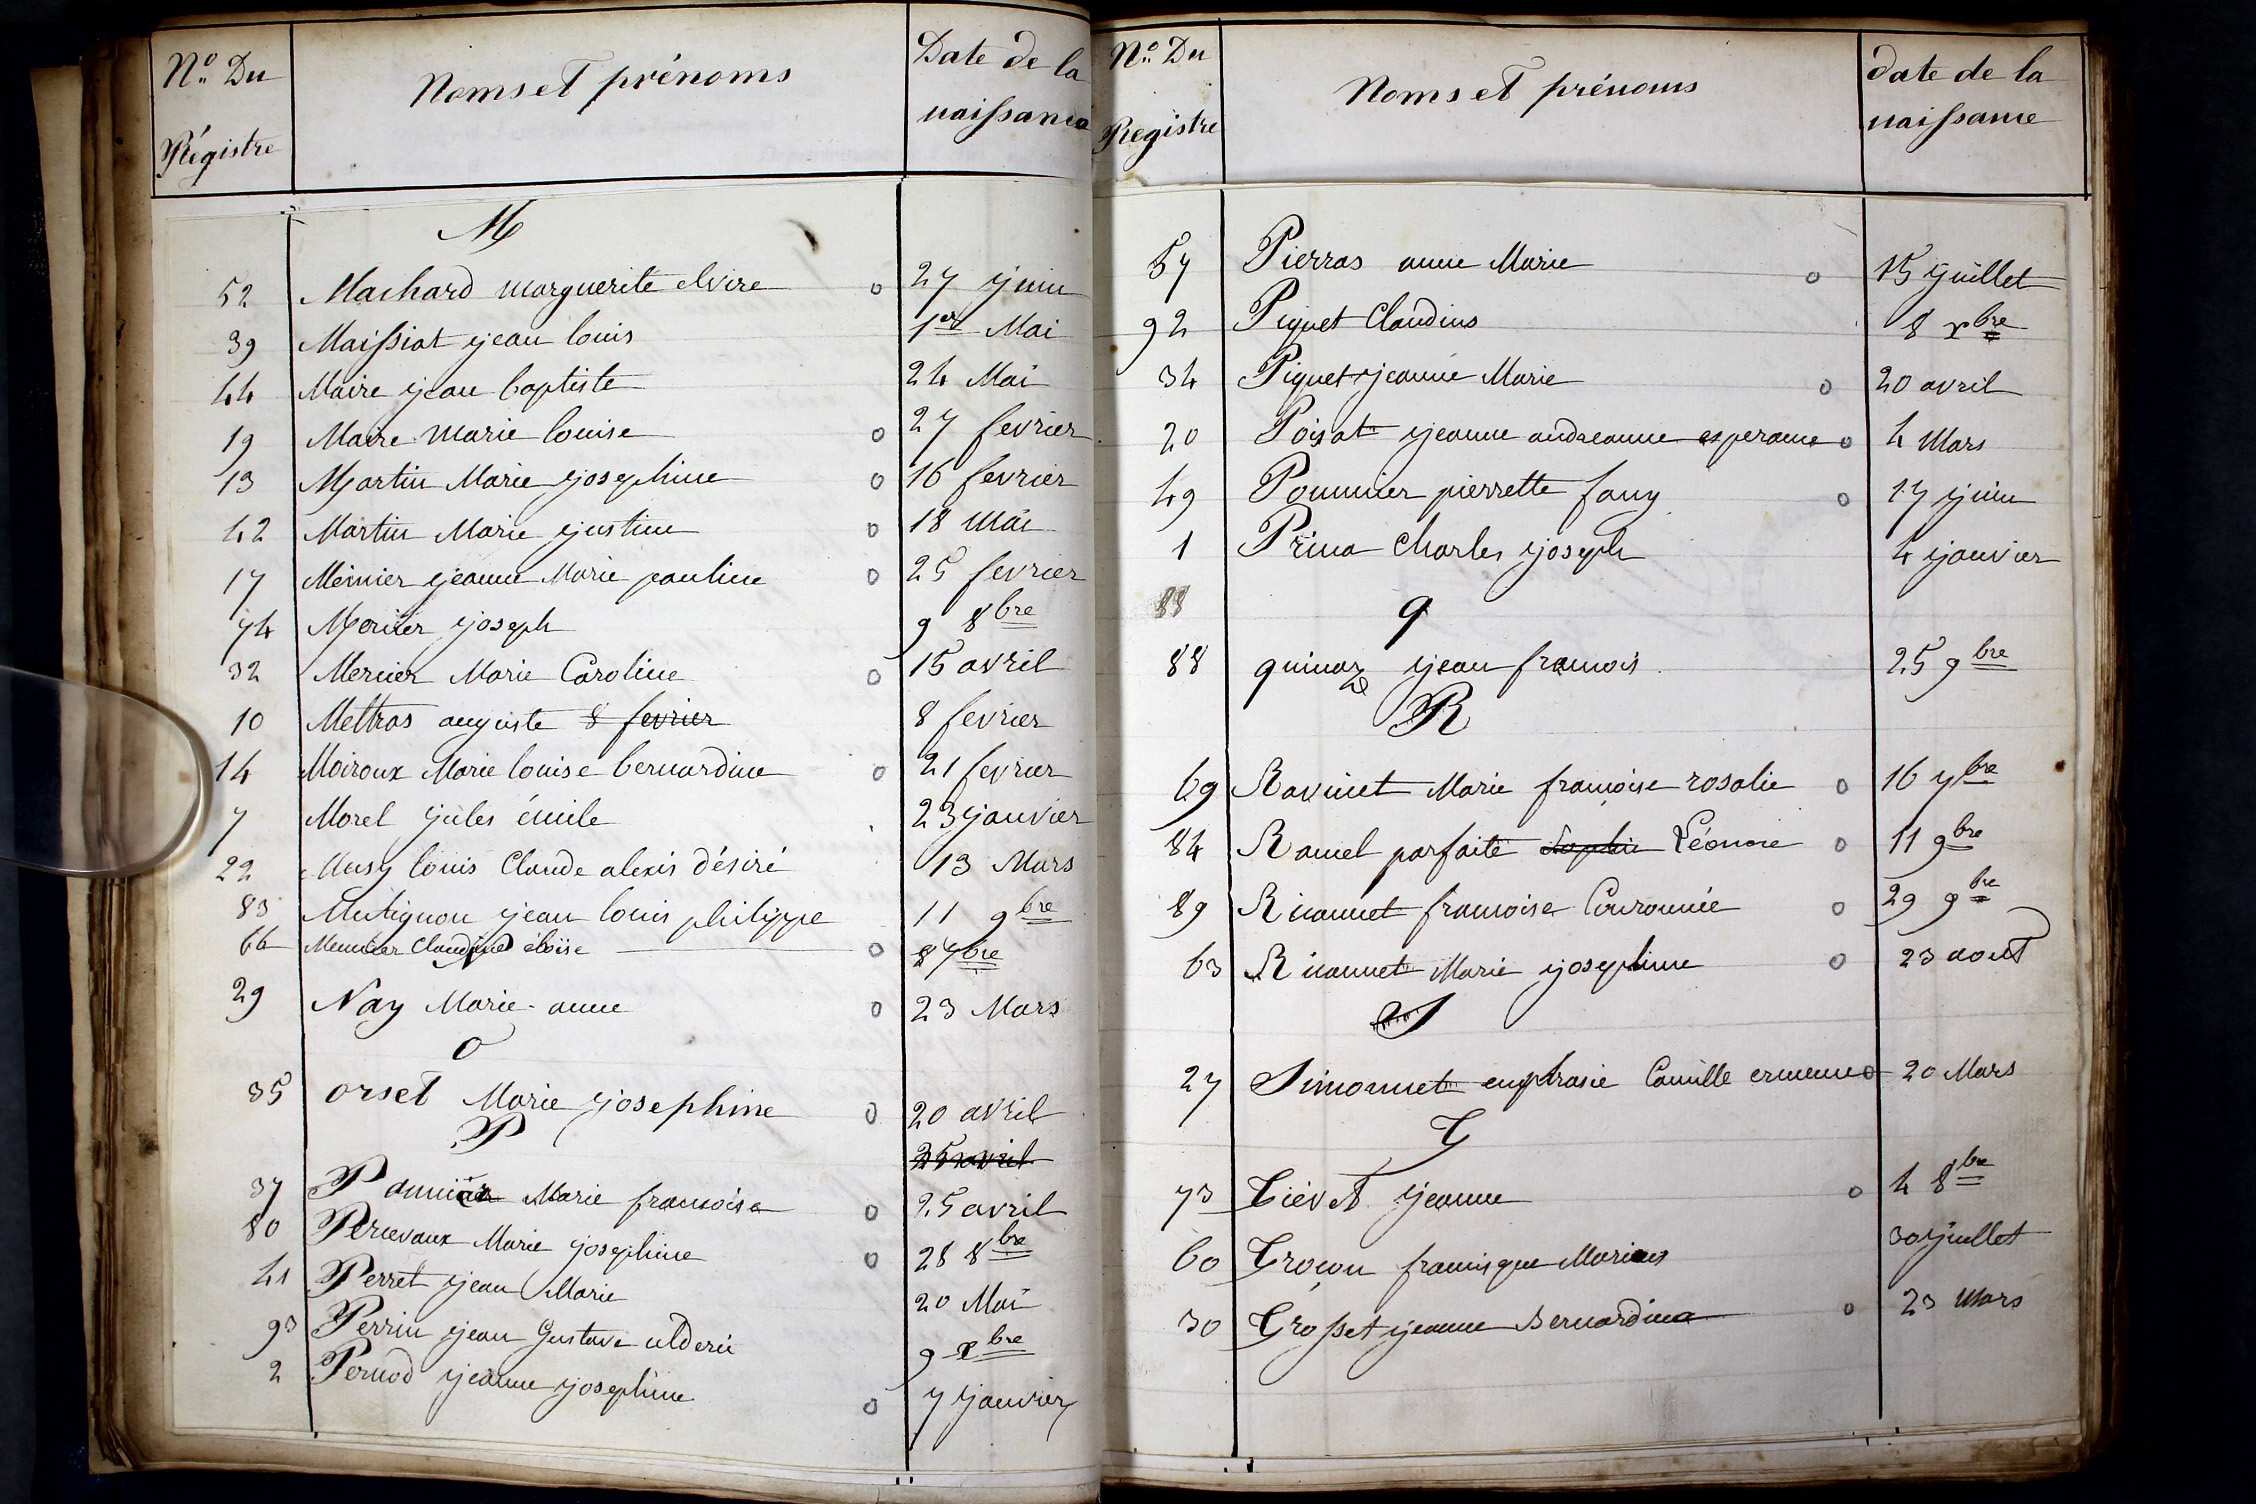 No. Du Régistre Noms et prénoms Date de la naissance
M
52 Machard marguerite elvire o 27 juin
39 Maissiat jean louis 1er Mai
44 Maire jean baptiste 24 Mai
19 Maire Marie louise o 27 fevrier
13 Martin Marie josephine o 16 fevrier
42 Martin Marie justine o 18 Mai
17 Meinier jeanne Marie pauline o 25 fevrier
74 Mercier joseph 9 8bre
32 Mercier Marie Caroline o 15 avril
10 Mettras auguste 8 fevrier 8 fevrier
14 Moiroux Marie louise bernardine o 21 fevrier
7 Morel jules émile 23 janvier
22 Musy louis Claude alexis désiré 13 Mars
83 Mutignon jean louis philippe 11 9bre
66 Meunier Claudine éloïse o 8 7bre
29 Nay Marie anne o 23 Mars
O
35 orset Marie josephine o 20 avril
P
25 avril
37 Marie francoise o 25 avril
80 Percevaux Marie josephine o 28 8bre
41 Perret jean Marie 20 Mai
93 Perrin jean Gustave ulderic 9 xbre
2 Pernod jeanne josephine o 7 janvier
No. Du Registre Noms et prénoms date de la naissance
57 Pierras anne Marie o 15 juillet
92 Piquet Claudius 8 xbre
34 Piquet jeanne Marie o 20 avril
20 Poisat jeanne andreanne esperance o 4 Mars
49 Pommier pierrette fany o 17 juin
1 Prina Charles joseph 4 janvier
88
q
88 quinaz jean francois 25 9bre
R
69 Ravinet Marie françoise rosalie o 16 7bre
84 Ramel parfaite Sophie Léonore o 11 9bre
89 Ricannet francoise Couronnée o 29 9bre
63 Ricannet Marie josephine o 23 aout
S
27 Simonnet euphrasie Camille ermence o 20 Mars
T
73 Tiévet jeanne o 4 8bre
60 Troçon francisque Marius 30 juillet
30 Trosset jeanne Bernardine o 23 Mars